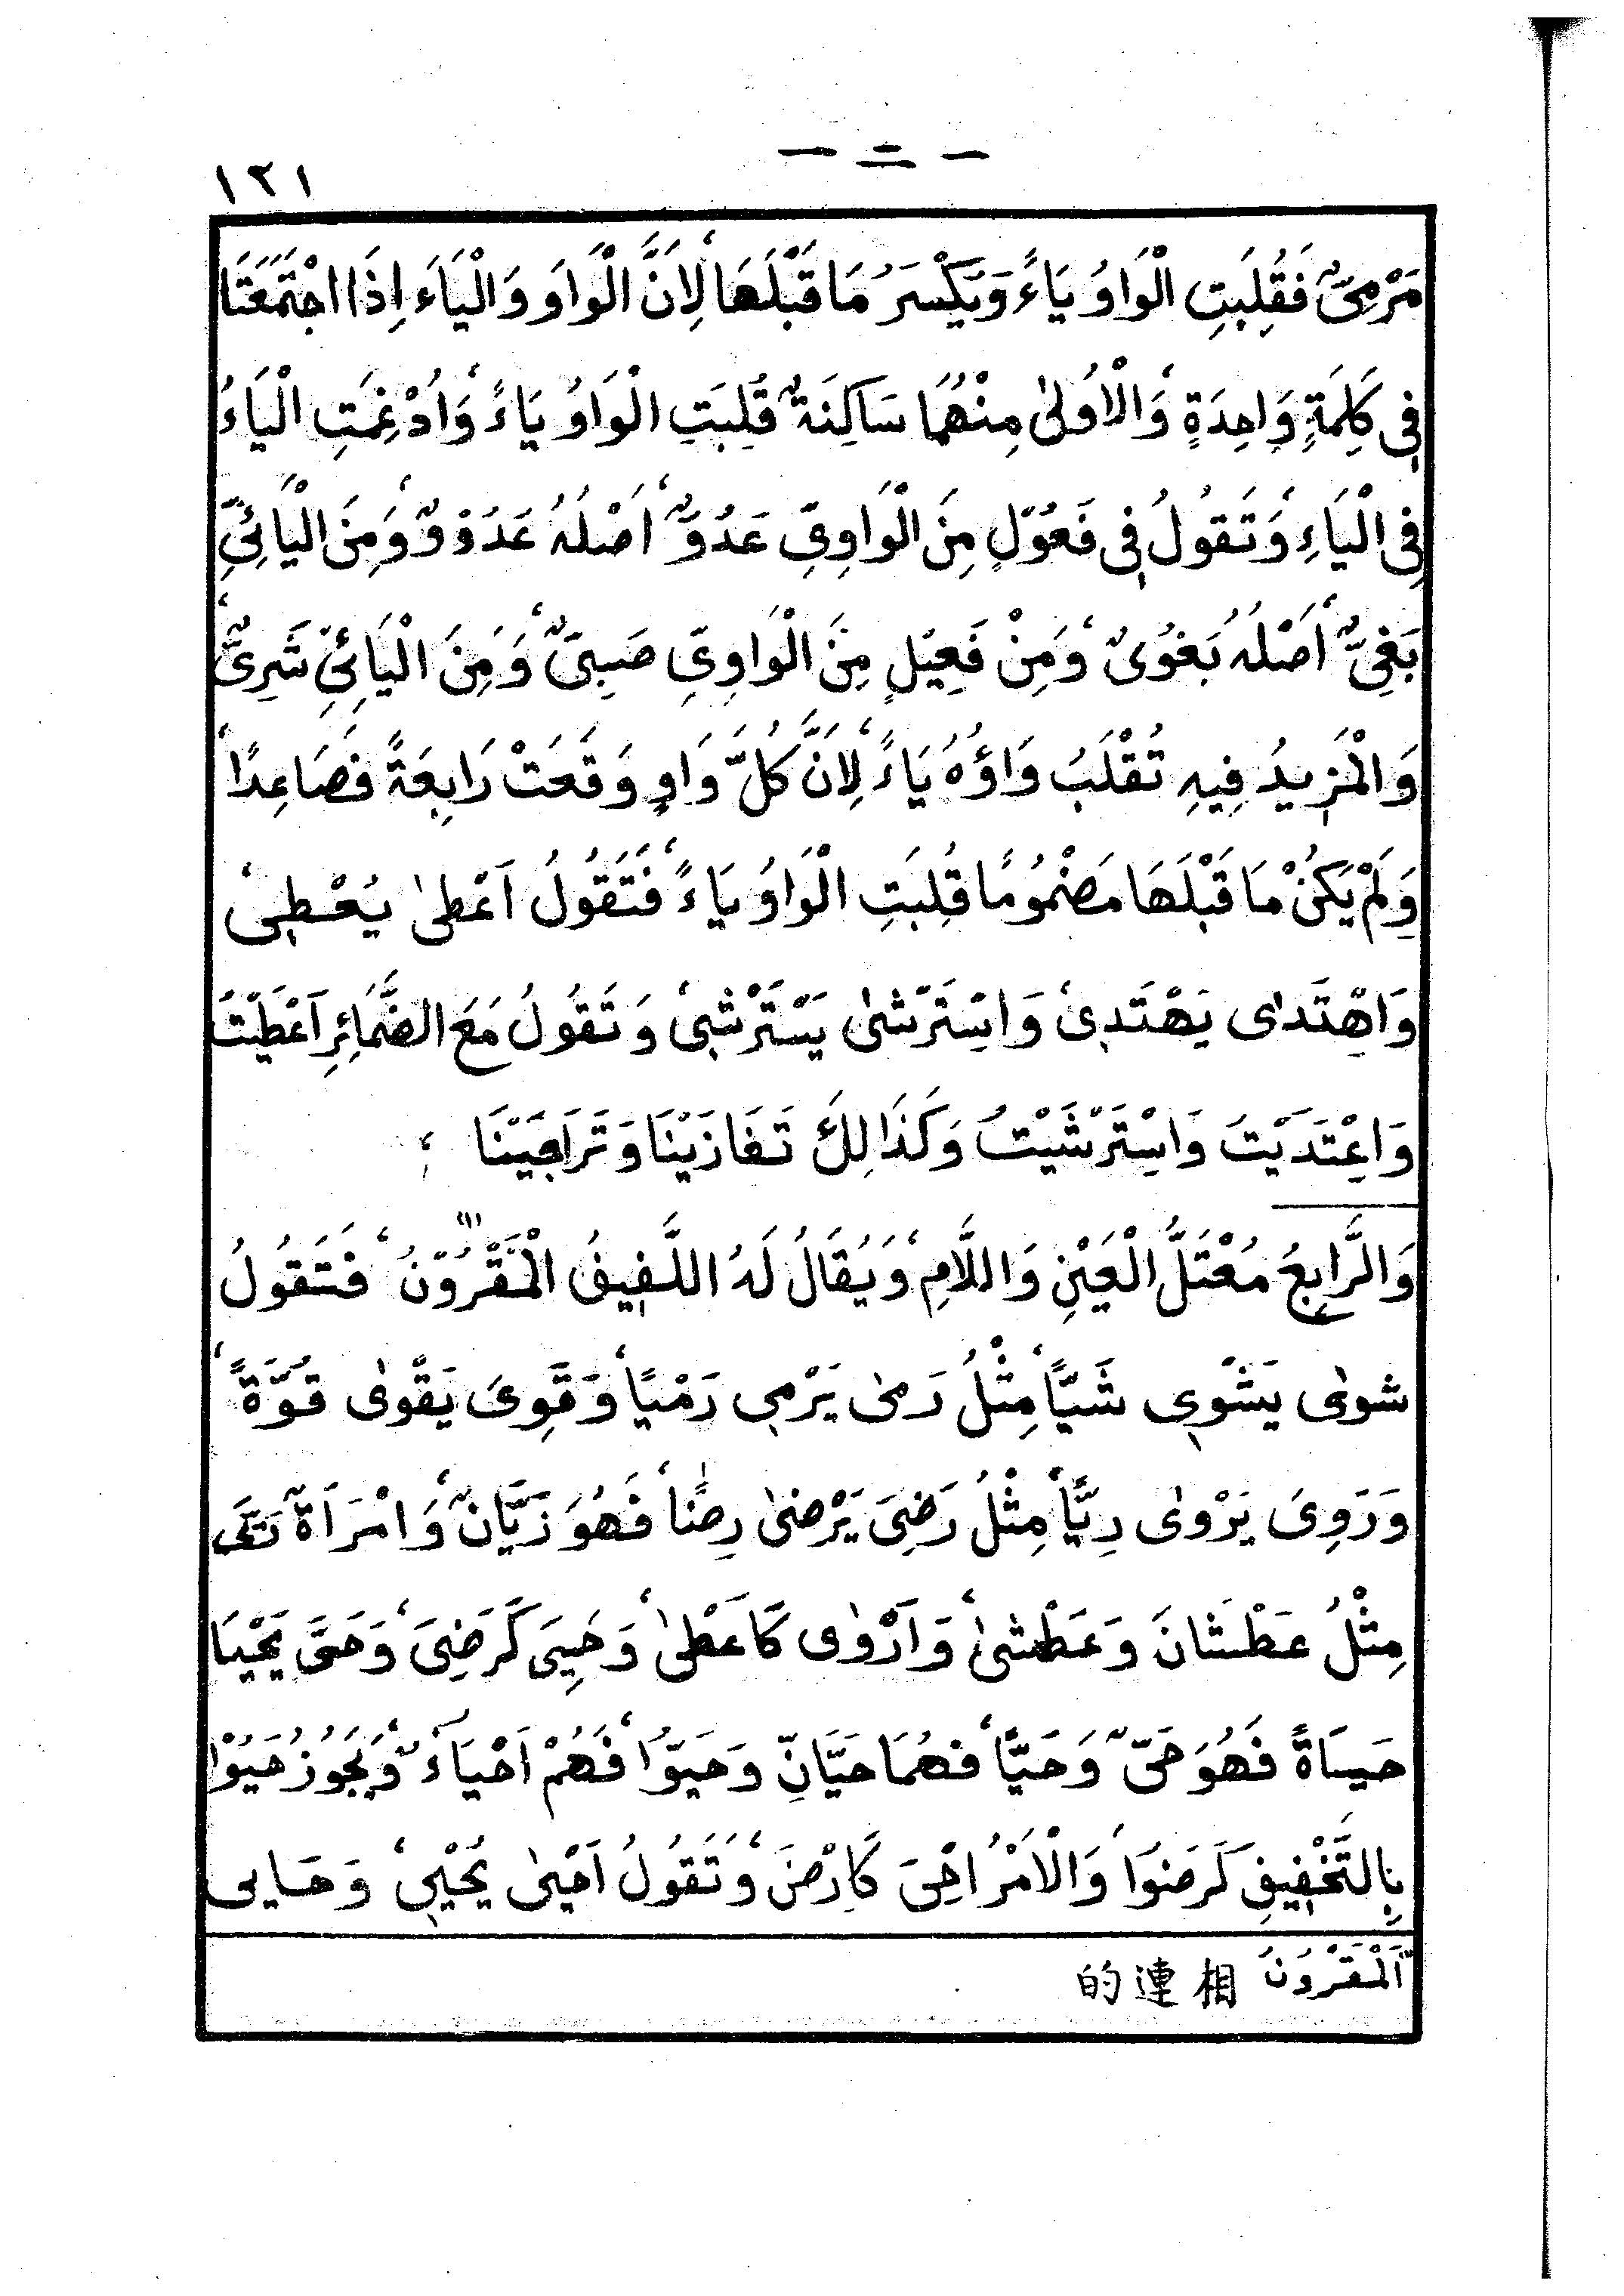 一二一
١٢١
مَرْمِىٌّ فَقُلِبَتِ الْوَاوُ يَاءً وَيُكْسَرُ مَا قَبْلَهَا، لِاَنَّ الْوَاوَ وَالْيَاءَ اِذَا اجْتَمَعَتَا
فِى كَلِمَةٍ وَاحِدَةٍ، وَالْاُولٰى مِنْهُمَا سَاكِنَةٌ قُلِبَتِ الْوَاوُ يَاءً، وَاُدْغِمَتِ الْيَاءُ
فِى الْيَاءِ، وَتَقُولُ فِى فَعُوْلٍ مِنَ الْوَاوِىِّ عَدُوٌّ، اَصْلُهُ عَدُوْوٌ، وَمِنَ الْيَائِىِّ
بَغِىٌّ، اَصْلُهُ بَغُوْىٌ، وَمِنْ فَعِيْلٍ مِنَ الْوَاوِىِّ صَبِىٌّ، وَمِنَ الْيَائِىِّ شَرِىٌّ،
وَالْمَزِيدُ فِيهِ تُقْلَبُ وَاوُهُ يَاءً، لِاَنَّ كُلَّ وَاوٍ وَقَعَتْ رَابِعَةً فَصَاعِدًا،
وَلَمْ يَكُنْ مَا قَبْلَهَا مَضْمُومًا قُلِبَتِ الْوَاوُ يَاءً، فَتَقُولُ اَعْطٰى يُعْطِى،
وَاهْتَدٰى يَهْتَدِى، وَاسْتَرْشٰى يَسْتَرْشِى، وَتَقُولُ مَعَ الضَّمَائِرِ اَعْطَيْتُ
وَاعْتَدَيْتُ وَاسْتَرْشَيْتُ وَكَذَالِكَ تَغَازَيْنَا وَتَرَاجَيْنَا ؛
وَالرَّابِعُ مُعْتَلُّ الْعَيْنِ وَاللَّامِ، وَيُقَالُ لَهُ اللَّفِيفُ الْمَقْرُوْنُ (١)، فَتَقُولُ
شوٰى يَشْوِى شَيًّا، مِثْلُ رَمٰى يَرْمِى رَمْيًا، وَقَوِىَ يَقْوٰى قُوَّةً،
وَرَوِىَ يَرْوٰى رِيًّا، مِثْلُ رَضِىَ يَرْضٰى رِضًا، فَهُوَ رَيَّانٌ، وَامْرَاَةٌ رَيَّى
مِثْلُ عَطْشَانَ وَعَطْشٰى، وَاَرْوٰى كَاَعْطٰى، وَحَيِىَ كَرَضِىَ، وَحَىَّ يَحْيَا
حَيَاةً فَهُوَ حَىٌّ، وَحَيًّا، فَهُمَا حَيَّانِ وَحَيّوُا، فَهُمْ اَحْيَاءٌ، وَيَجُوزُ حَيُوْا
بِالتَّخْفِيفِ كَرَضُوا، وَالْاَمْرُ اِحْىَ كَارْضَ، وَتَقُولُ اَحْيٰى يُحْيِى، وَحَايى
اَلْمَقْرُونُ 相連的